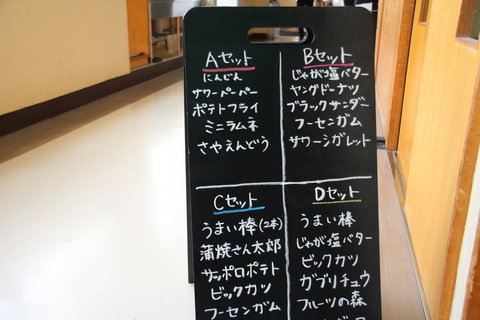 Aセット
にんじん
サワーペーパー
ポテトフライ
ミニラムネ
さやえんどう
Bセット
じゃが塩バター
ヤングドーナツ
ブラックサンダー
フーセンガム
サワーシガレット
Cセット
うまい棒(2本)
蒲焼さん太郎
サッポロポテト
ビックカツ
フーセンガム
Dセット
うまい棒
じゃが塩バター
ビックカツ
ガブリチュウ
フルーツの森